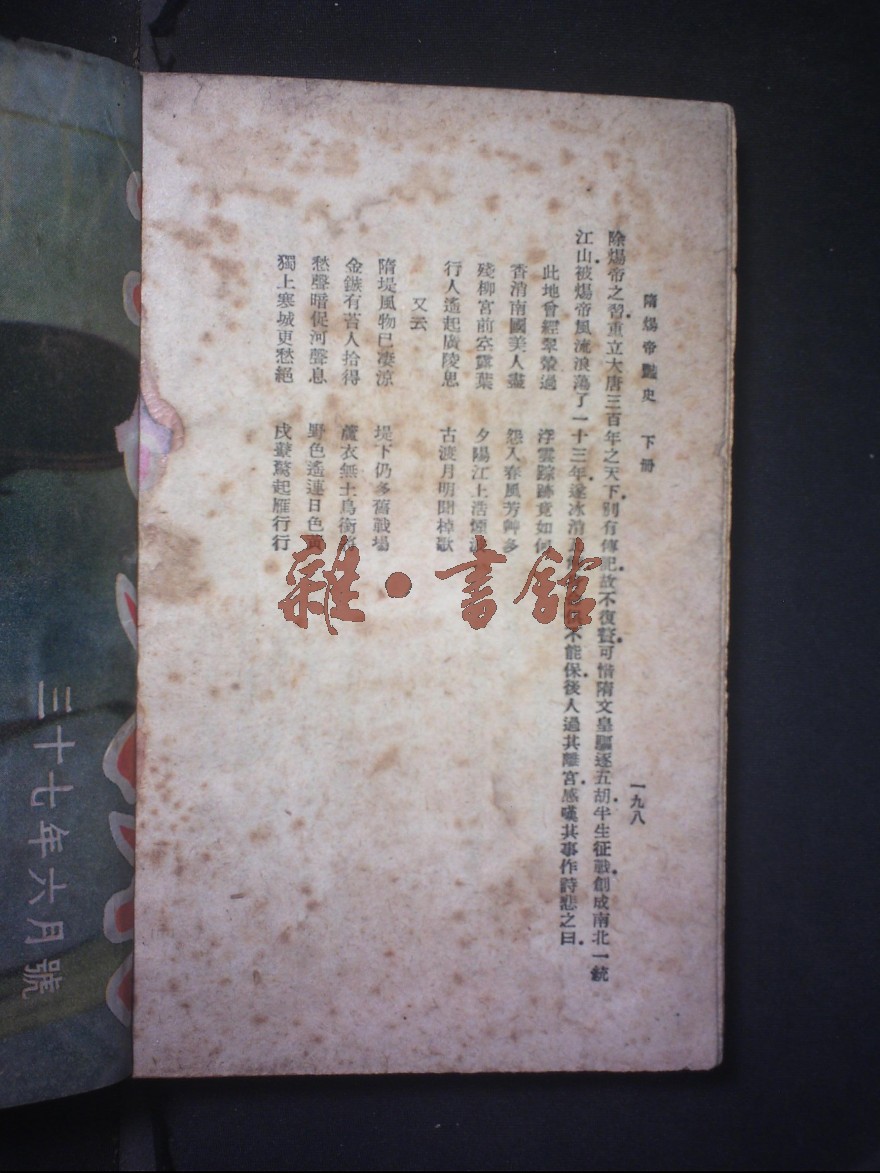 隋煬帝豔史 下册
一九八
除煬帝之習重立大唐三百年之天下別有傳記故不復贅可惜隋文皇驅逐五胡半生征戰創成南北一統
江山被煬帝風流浪蕩了一十三年遂冰消 不能保後人過其離宮感嘆其事作詩悲之曰
此地曾經翠輦過 浮雲踪跡竟如何
香消南國美人盡 怨入春風芳艸多
殘柳宮前空露葉 夕陽江上浩煙波
行人遙起廣陵思 古渡月明聞棹歌
又云
隋堤風物已凄涼 堤下仍多舊戰場
金鏃有苔人拾得 蘆衣無土鳥銜
愁聲暗促河聲息 野色遙連日色黃
獨上寒城更愁絕 戍鼙驚起雁行行
雜·書館
三十七年六月號